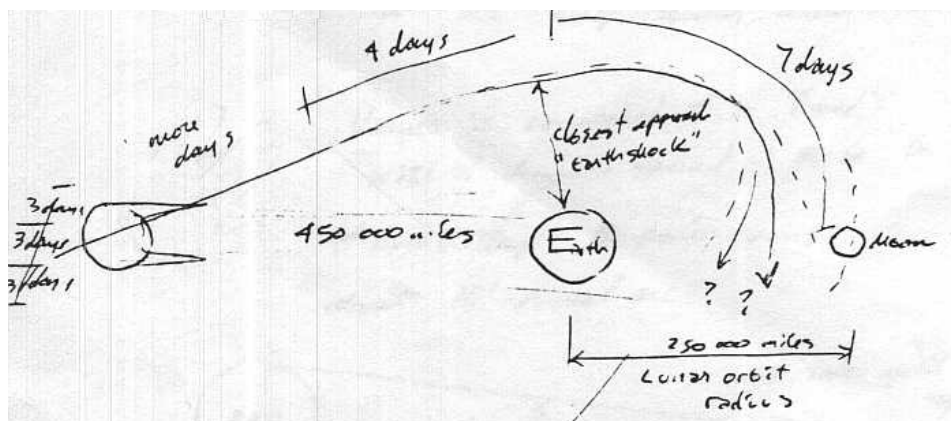 4 days
7 days
more
days
closest approach
"Earthshock"
3 days
3 days
3 days
450 000 miles
Earth
Moon
? ?
250 000 miles
Lunar orbit
radius